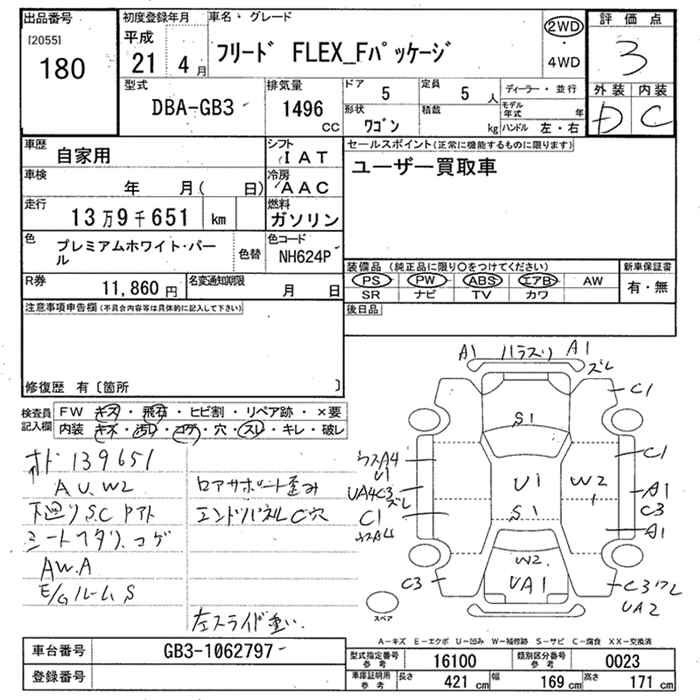 出品番号
[2055]
180
初度登録年月
平成
21 4 月
車名 ・ グレード
フリード FLEX_Fパッケージ
2WD
・
4WD
評価点
3
外装 内装
D C
型式
DBA-GB3
排気量
1496
CC
ドア
5
定員
5 人
形状
ワゴン
積載
kg
ディーラー ・ 並行
モデル年式 年
ハンドル 左・右
車歴
自家用
シフト
IAT
車検
年 月( 日)
冷房
AAC
走行
13万9千651 km
燃料
ガソリン
色
プレミアムホワイト・パール
色替
色コード
NH624P
R券
11,860 円
名変通知期限
月 日
セールスポイント(正常に機能するものに限ります)
ユーザー買取車
装備品 (純正品に限り○をつけてください)
PS PW ABS エアB AW
SR ナビ TV カワ
新車保証書
有・無
後日品
注意事項申告欄(不具合内容等は具体的に記入して下さい)
修復歴 有〔箇所 〕
検査員記入欄
FW キズ・飛石・ヒビ割・リペア跡・×要
内装 キズ・汚れ・コゲ・穴・スレ・キレ・破レ
オド 139651
AU.W2
下廻りS.C アト
シートヘタリ.コゲ
AW.A
E/Gルーム S
ロアサポート歪み
エンドパネルC穴
左スライド重い.
A1 バラズリ A1
ズレ
C1
S1
C1
ウスA4
U1
UA4C3
ズレ
C1
ウスA4
U1
W2
S1
A1
C3
A1
W2
UA1
C3
C3ワレ
UA2
スペア
A-キズ E-エクボ U-凹み W-補修跡 S-サビ C-腐食 XX-交換済
車台番号
GB3-1062797
登録番号
型式指定番号
参考
16100
類別区分番号
参考
0023
車庫証明用
参考
長さ
421 cm
幅
169 cm
高さ
171 cm